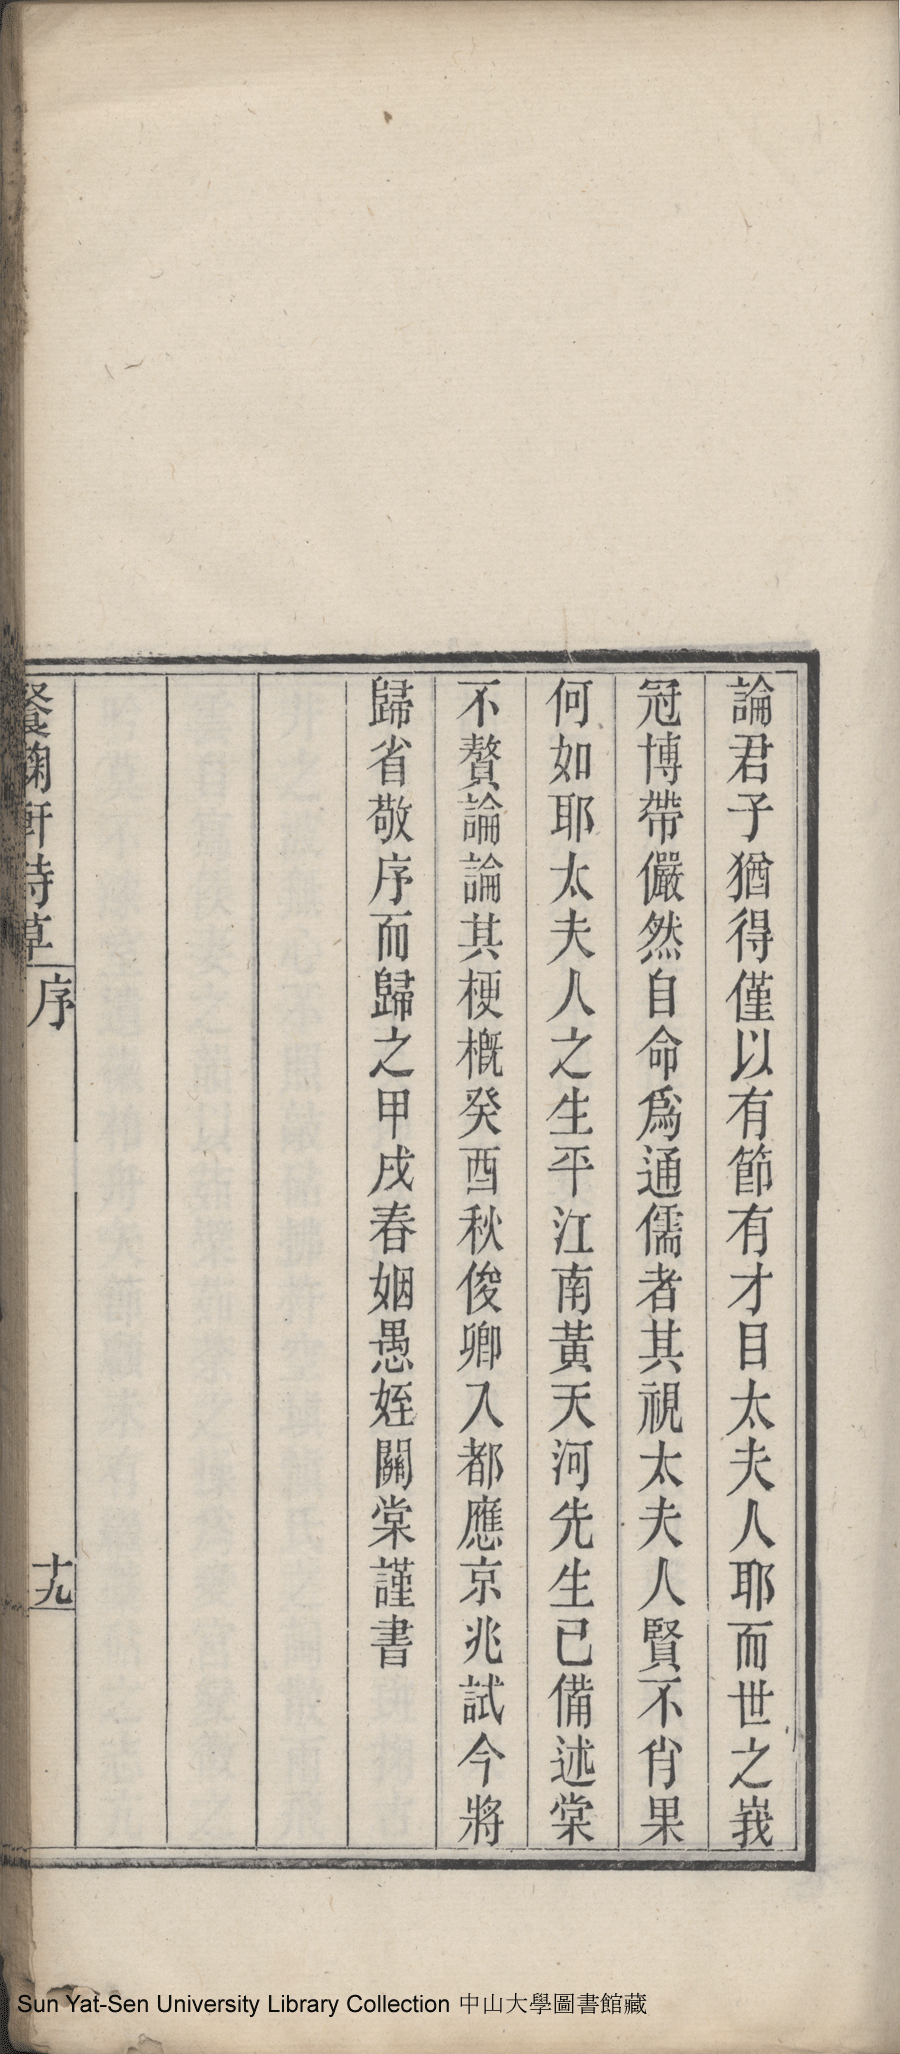 論君子猶得僅以有節有才目太夫人耶而世之峩
冠博帶儼然自命爲通儒者其視太夫人賢不肖果
何如耶太夫人之生平江南黃天河先生已備述棠
不贅論論其梗槪癸酉秋俊卿入都應京兆試今將
歸省敬序而歸之甲戌春姻愚姪關棠謹書
餐菊軒詩草
序
十九
Sun Yat-Sen University Library Collection 中山大學圖書館藏